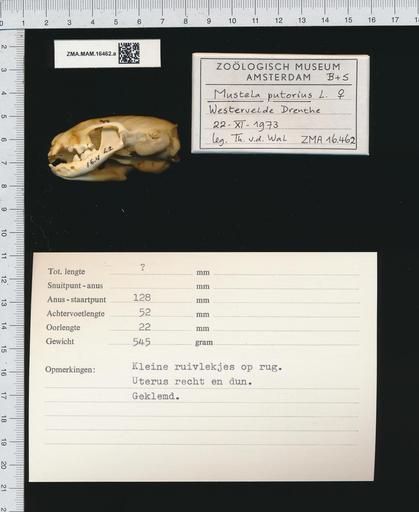 ZMA.MAM.16462.a
ZOÖLOGISCH MUSEUM
AMSTERDAM B+S
Mustela putorius L. ♀
Westervelde Drenthe
22-XI-1973
leg. Th. v.d. Wal ZMA 16.462
16.462
Tot. lengte ? mm
Snuitpunt-anus mm
Anus-staartpunt 128 mm
Achtervoetlengte 52 mm
Oorlengte 22 mm
Gewicht 545 gram
Opmerkingen: Kleine ruivlekjes op rug.
Uterus recht en dun.
Geklemd.